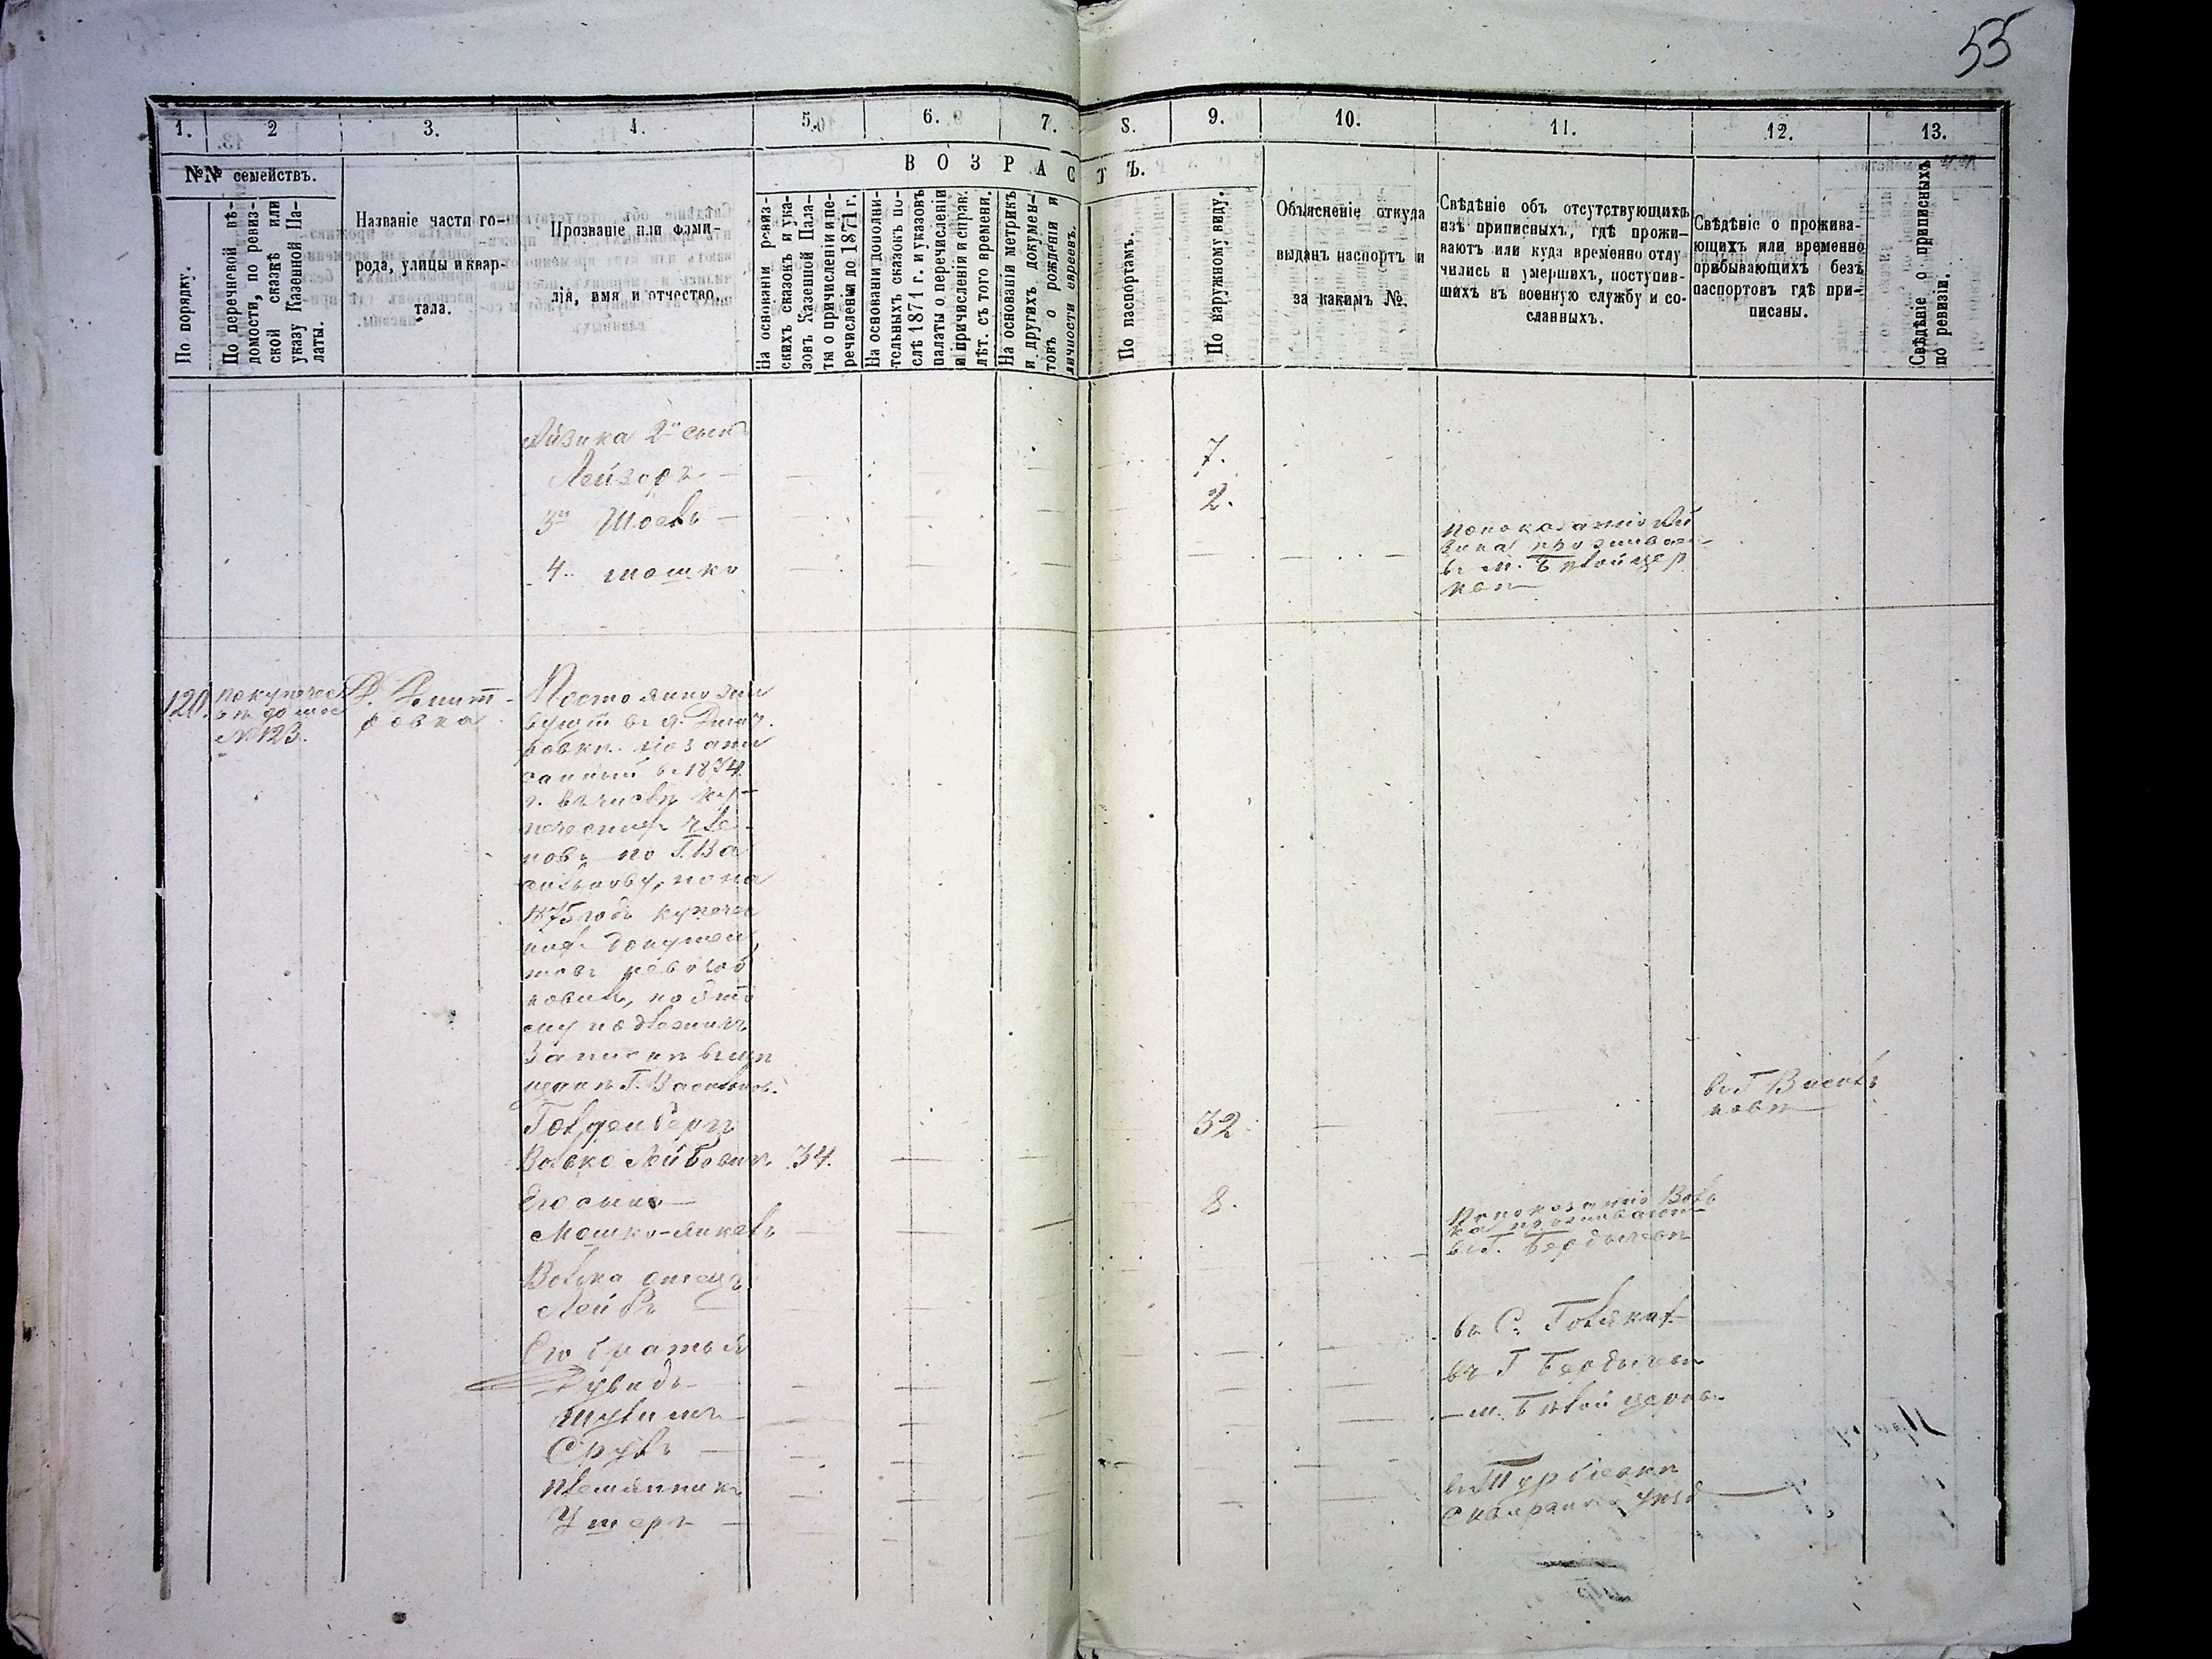 55
1. 2 3. 4. 5. 6. 7. 8. 9. 10. 11. 12. 13.
№№ семействъ.
ВОЗРАСТЪ.
По порядку.
По перечневой вѣ-
домости, по ревиз-
ской сказкѣ или
указу Казенной Па-
латы.
Названіе части го-
рода, улицы и квар-
тала.
Прозваніе или фами-
лія, имя и отчество.
На основаніи ревиз-
скихъ сказокъ и ука-
зовъ Казенной Пала-
ты о причисленіи и пе-
речисленіи до 1871 г.
На основаніи дополни-
тельныхъ сказокъ по-
слѣ 1871 г. и указовъ
палаты о перечисленіи
и причисленіи и справ.
лѣт. съ того времени.
На основаніи метрикъ
и другихъ докумен-
товъ о рожденіи и
личности евреевъ.
По паспортамъ.
По наружному виду.
Объясненіе откуда
выданъ паспортъ и
за какимъ №.
Свѣдѣніе объ отсутствующихъ
изъ приписныхъ, гдѣ прожи-
ваютъ или куда временно отлу
чились и умершихъ, поступив-
шихъ въ военную службу и со-
сланныхъ.
Свѣдѣніе о прожива-
ющихъ или временно
прибывающихъ безъ
паспортовъ гдѣ при-
писаны.
Свѣдѣніе о приписныхъ
по ревизіи.
Айзика 2й сынъ
Лейзоръ — 7.
3й Шоель — 2.
4. мошко
по показанію Ай
зика проживаетъ
въ м. Бѣлой цер
кви
120.
по купечес
№ 123.
Д. Дмит-
ровка
Постоянно жи
вущій в д. Дмит.
ровки по запи
санный в 1874
г. въ числѣ ку-
печескихъ чле-
новъ по Г. Ва
силькову, но на
1875 годъ купечес
кихъ докумен
товъ невозоб
новилъ, по это
му подлежитъ
Запискѣ въ мѣ
щани Г. Васильков.
Гольденбергъ
Волько Лейбовичъ 34. 32
в Г Василь
ковѣ
Его сынъ
Мошко-Янкель 8.
По показанію Воль
ка проживаетъ
в Г. Бердичевѣ
Волька отецъ
Лейба
въ С. Голякахъ
Его братья
Дувидъ
въ Г Бердичевѣ
Шулимъ
— м. Бѣлой церкв.
Сруль —
племянникъ
Ушеръ —
Сквирскаго уѣзд